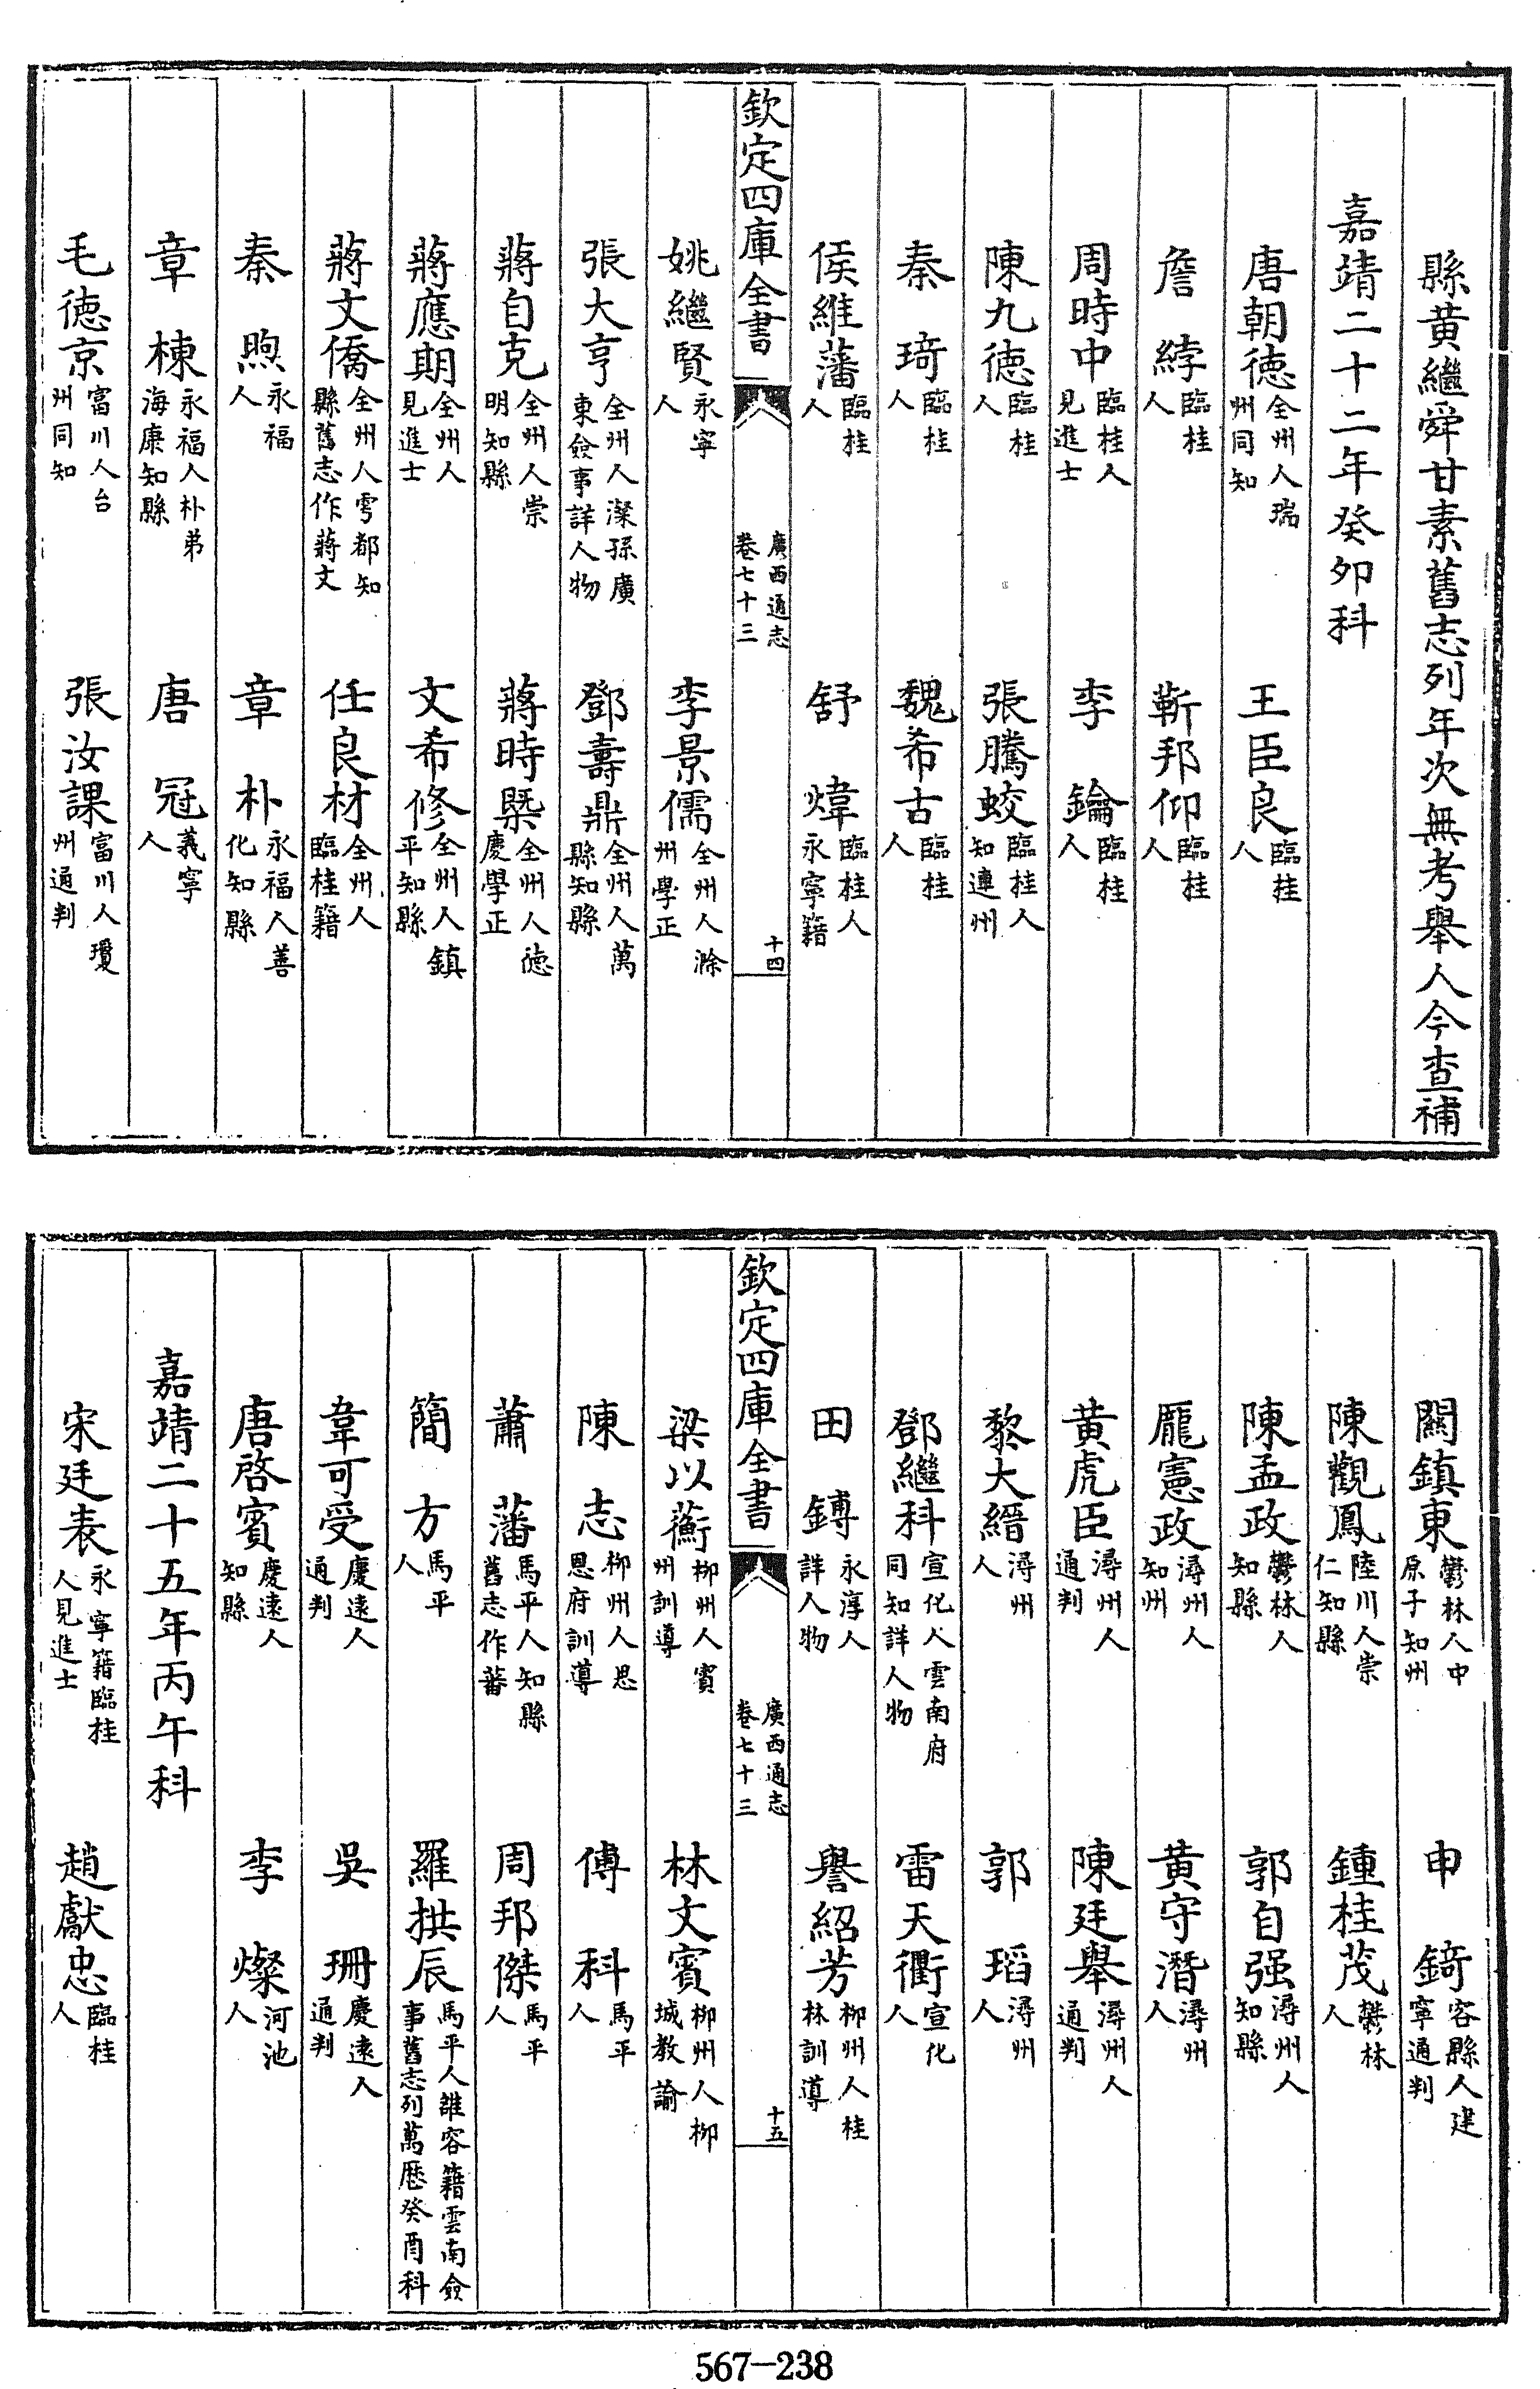 縣黄繼舜甘素舊志列年次無考舉人今查補
嘉靖二十二年癸夘科
唐朝徳全州人瑞州同知 王臣良臨桂人
詹綍臨桂人 靳邦仰臨桂人
周時中臨桂人見進士 李鑰臨桂人
陳九徳臨桂人 張騰蛟臨桂人知連州
秦琦臨桂人 魏希古臨桂人
侯維藩臨桂人 舒煒臨桂人永寧籍
欽定四庫全書 廣西通志卷七十三 十四
姚繼賢永寧人 李景儒全州人滁州學正
張大亨全州人濴孫廣東僉事詳人物 鄧壽鼎全州人萬縣知縣
蔣自克全州人崇明知縣 蔣時槩全州人徳慶學正
蔣應期全州人見進士 文希修全州人鎮平知縣
蔣文僑全州人雩都知縣舊志作蔣文 任良材全州人臨桂籍
秦煦永福人 章朴永福人善化知縣
章棟永福人朴弟海康知縣 唐冠義寧人
毛徳京富川人台州同知 張汝課富川人瓊州通判
闗鎮東鬱林人中原子知州 申錡容縣人建寧通判
陳觀鳳陸川人崇仁知縣 鍾桂茂鬱林人
陳孟政鬱林人知縣 郭自强潯州人知縣
龎憲政潯州人知州 黄守濳潯州人
黄虎臣潯州人通判 陳廷舉潯州人通判
黎大縉潯州人 郭瑫潯州人
鄧繼科宣化人雲南府同知詳人物 雷天衢宣化人
田鎛永淳人詳人物 譽紹芳柳州人桂林訓導
欽定四庫全書 廣西通志卷七十三 十五
梁以蘅柳州人賓州訓導 林文賓柳州人柳城教諭
陳志柳州人思恩府訓導 傅科馬平人
蕭藩馬平人知縣舊志作蕃 周邦傑馬平人
簡方馬平人 羅拱辰馬平人誰容籍雲南僉事舊志列萬厯癸酉科
韋可受慶逺人通判 吳珊慶逺人通判
唐啓賓慶逺人知縣 李燦河池人
嘉靖二十五年丙午科
宋廷表永寧籍臨桂人見進士 趙獻忠臨桂人
567—238